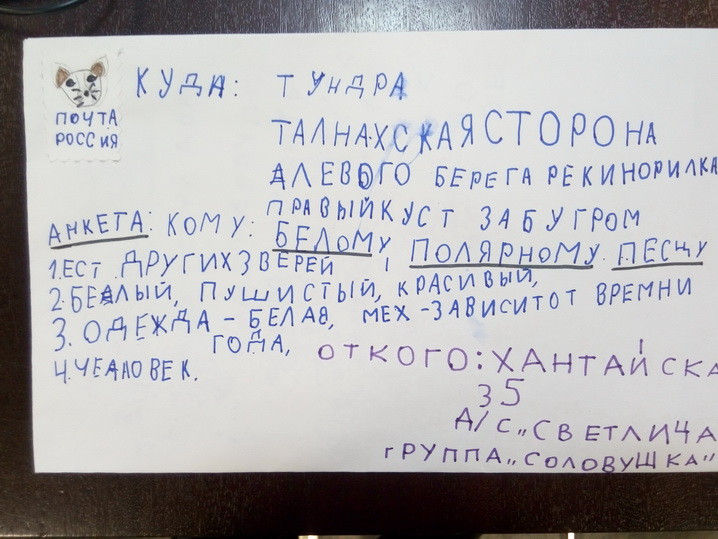 КУДА: ТУНДРА
ПОЧТА
РОССИЯ
ТАЛНАХСКАЯ СТОРОНА
ЛЕВОГО БЕРЕГА РЕКИНОРИЛКА
ПРАВЫЙ КУСТ ЗА БУГРОМ
АНКЕТА: КОМУ: БЕЛОМУ ПОЛЯРНОМУ ПЕСЦУ
1.ЕСТ ДРУГИХЗВЕРЕЙ
2.БЕЛЫЙ, ПУШИСТЫЙ, КРАСИВЫЙ,
3. ОДЕЖДА - БЕЛАЯ, МЕХ - ЗАВИСИТОТ ВРЕМНИ
ГОДА,
4.ЧЕЛОВЕК.
ОТКОГО: ХАНТАЙСКА
35
Д/С „СВЕТЛИЧА
ГРУППА „СОЛОВУШКА"